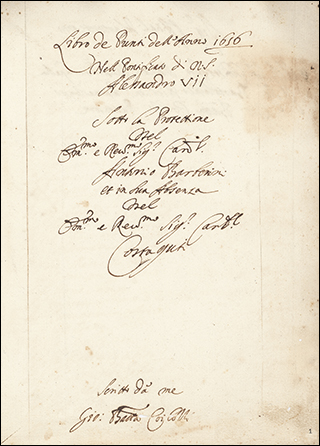 Libro de Punti dell'Anno 1656
Nell Pontificato di N.S.
Alessandro VII
Sotto la Protettione
Del
Em.mo e Rev.mo Sig.r Card.l
Antonio Barberini
et in sua Absenza
Del
Em.mo e Rev.mo Sig.r Card.l
Costaguti
Scritto da me
Gio: Batta
1